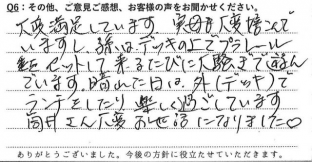 Q6：その他、ご意見ご感想、お客様の声をお聞かせください。
大変満足しています 実母が大変喜んで
いますし、孫はデッキの上でプラレール
セットして来るたびに大騒ぎで遊ん
でいます。晴れた日は、外(デッキ)で
ランチをしたり楽しく過ごしています
筒井さん大変お世話になりました♡
ありがとうございました。今後の方針に役立たせていただきます。